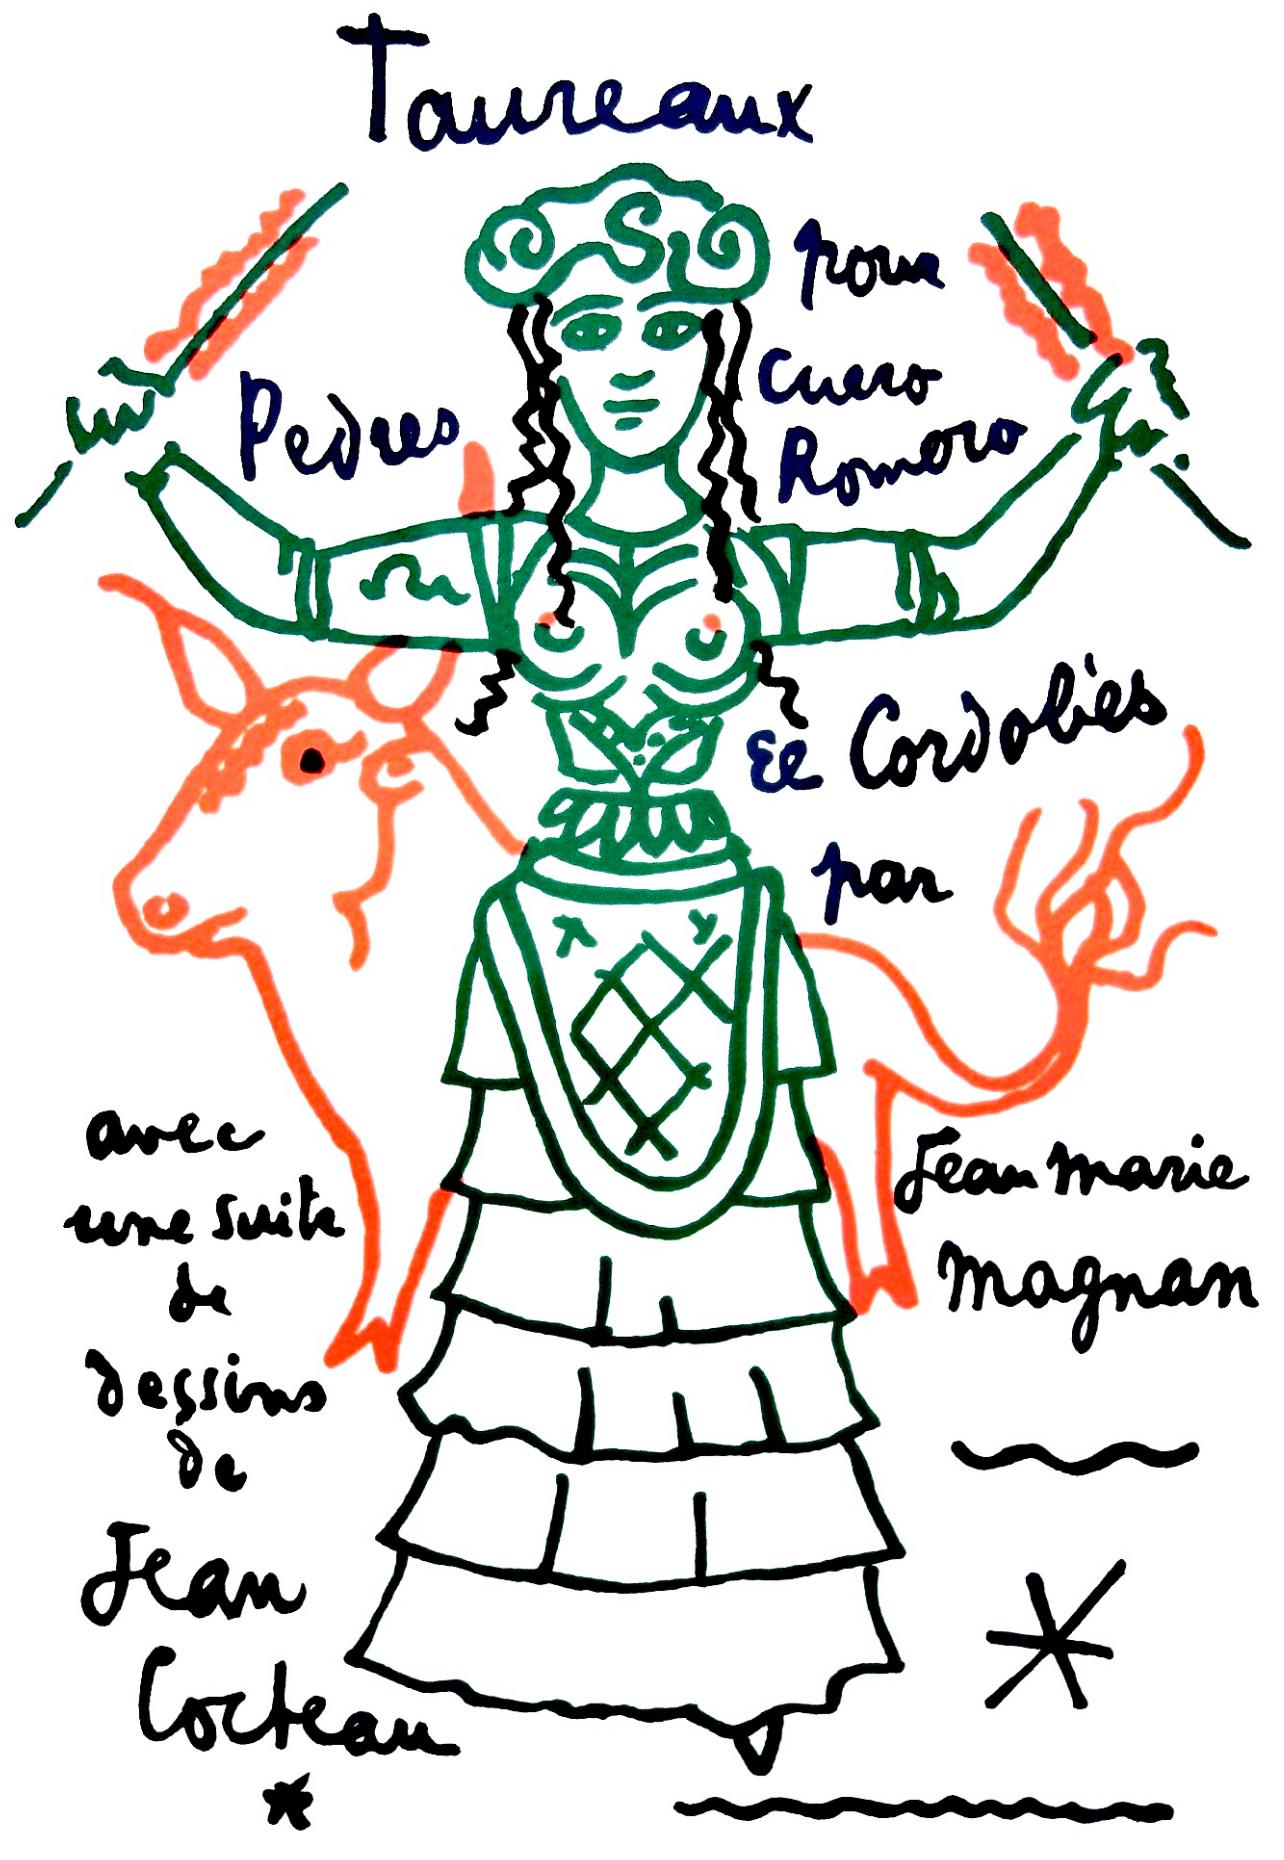 Taureaux
pour
Pedrès
Cuero
Romero
El Cordobès
par
Jean Marie
Magnan
avec
une suite
de
dessins
de
Jean
Cocteau